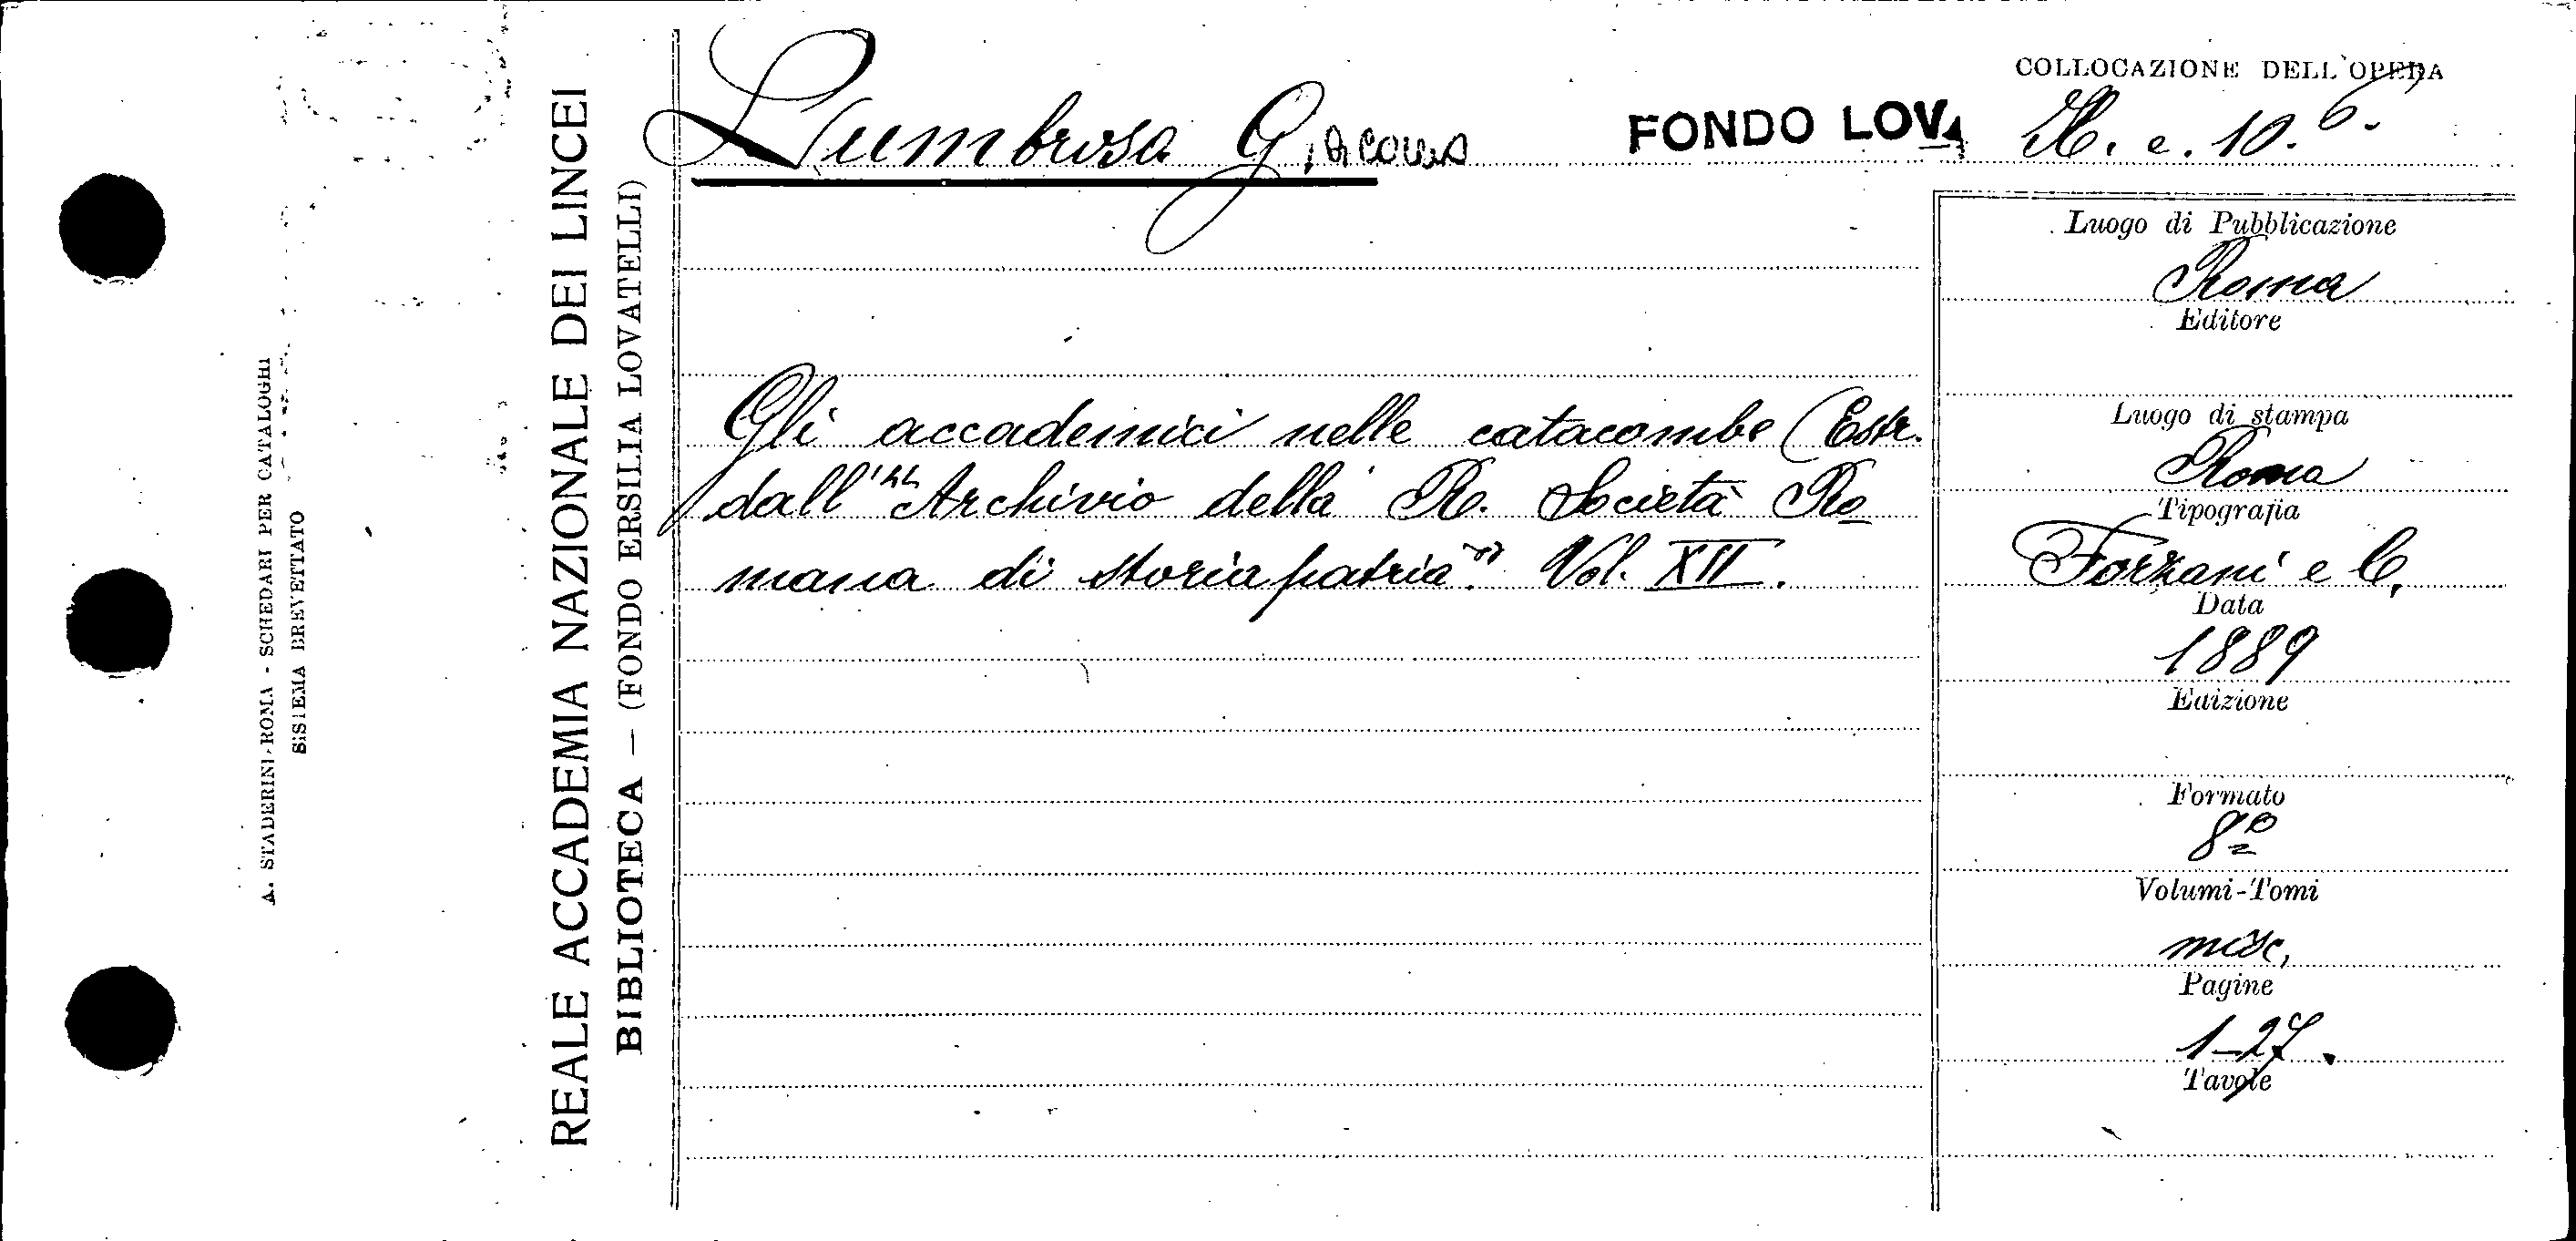 COLLOCAZIONE DELL'OPERA
Lumbroso Giacomo
FONDO LOV.
Gli accademici nelle catacombe (Estr.
dall'"Archivio della R. Società Ro
mana di storia patria". Vol. XII.
Luogo di Pubblicazione
Roma
Editore
Luogo di stampa
Roma
Tipografia
Forzani e C.
Data
1889
Edizione
Formato
8º
Volumi-Tomi
misc.
Pagine
1-27.
Tavole
REALE ACCADEMIA NAZIONALE DEI LINCEI
BIBLIOTECA — (FONDO ERSILIA LOVATELLI)
A. STADERINI-ROMA - SCHEDARI PER CATALOGHI
SISTEMA BREVETTATO